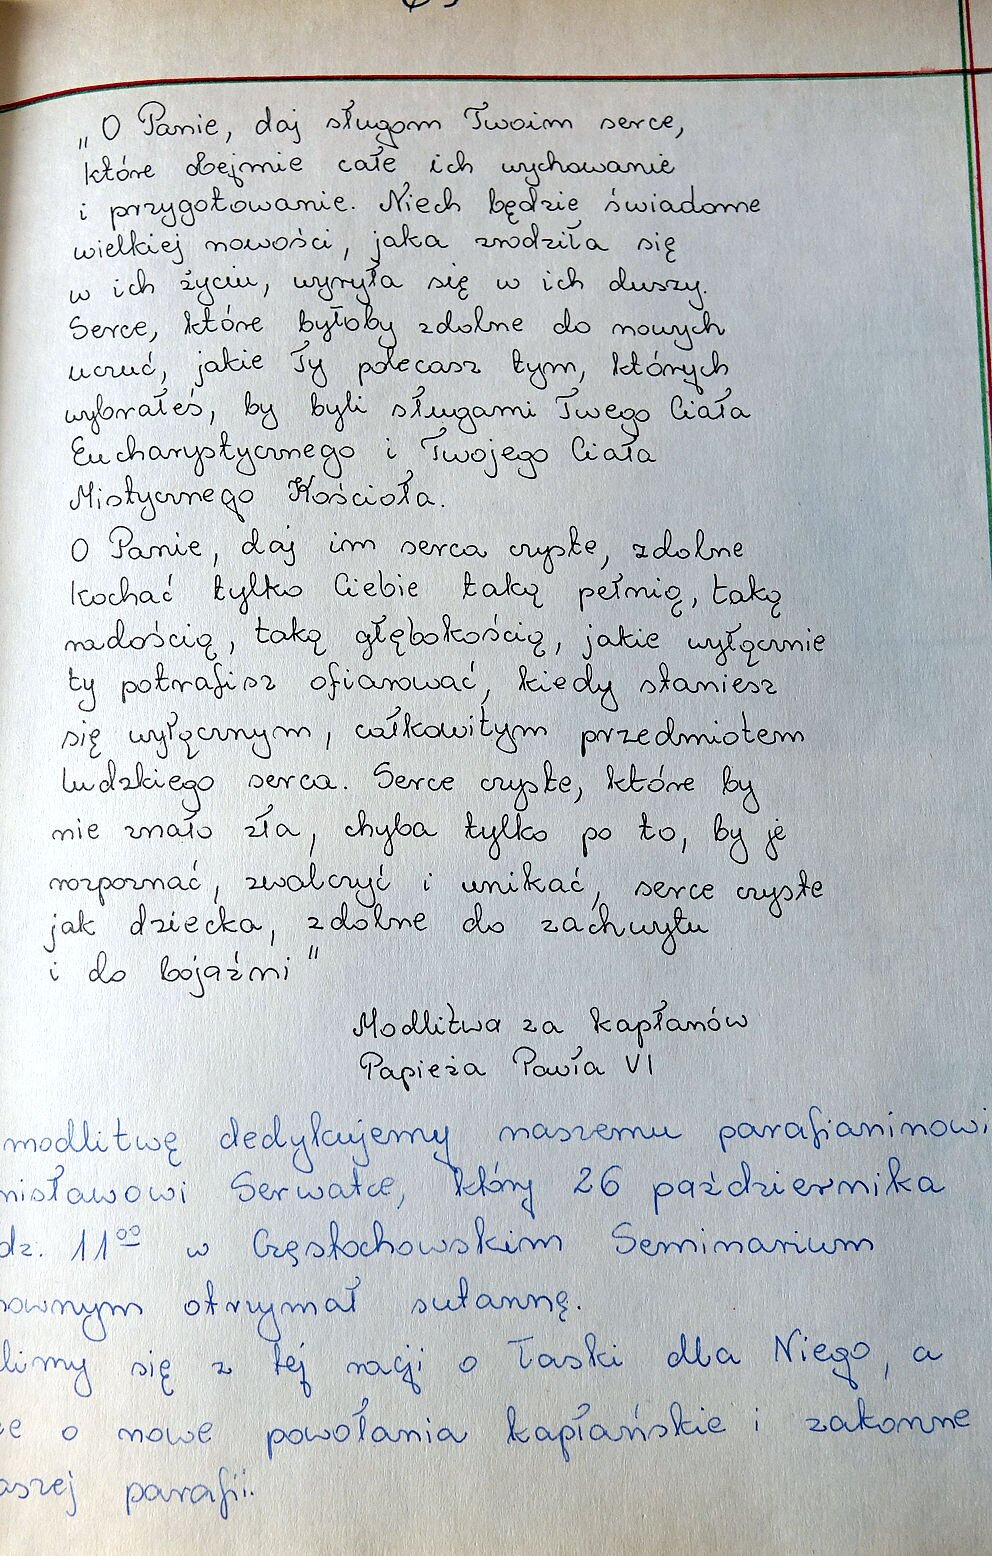 „O Panie, daj sługom Twoim serce,
które obejmie całe ich wychowanie
i przygotowanie. Niech będzie świadome
wielkiej nowości, jaka zrodziła się
w ich życiu, wyryła się w ich duszy.
Serce, które byłoby zdolne do nowych
uczuć, jakie Ty polecasz tym, których
wybrałeś, by byli sługami Twego Ciała
Eucharystycznego i Twojego Ciała
Mistycznego Kościoła.
O Panie, daj im serca czyste, zdolne
kochać tylko Ciebie taką pełnią, taką
radością, taką głębokością, jakie wyłącznie
ty potrafisz ofiarować, kiedy staniesz
się wyłącznym, całkowitym przedmiotem
ludzkiego serca. Serce czyste, które by
nie znało zła, chyba tylko po to, by je
rozpoznać, zwalczyć i unikać, serce czyste
jak dziecka, zdolne do zachwytu
i do bojaźni"
Modlitwa za kapłanów
Papieża Pawła VI
modlitwę dedykujemy naszemu parafianinowi
nisławowi Serwatce, który 26 października
dz. 11⁰⁰ w Częstochowskim Seminarium
hownym otrzymał sutannę.
limy się z tej racji o łaski dla Niego, a
że o nowe powołania kapłańskie i zakonne
aszej parafii.